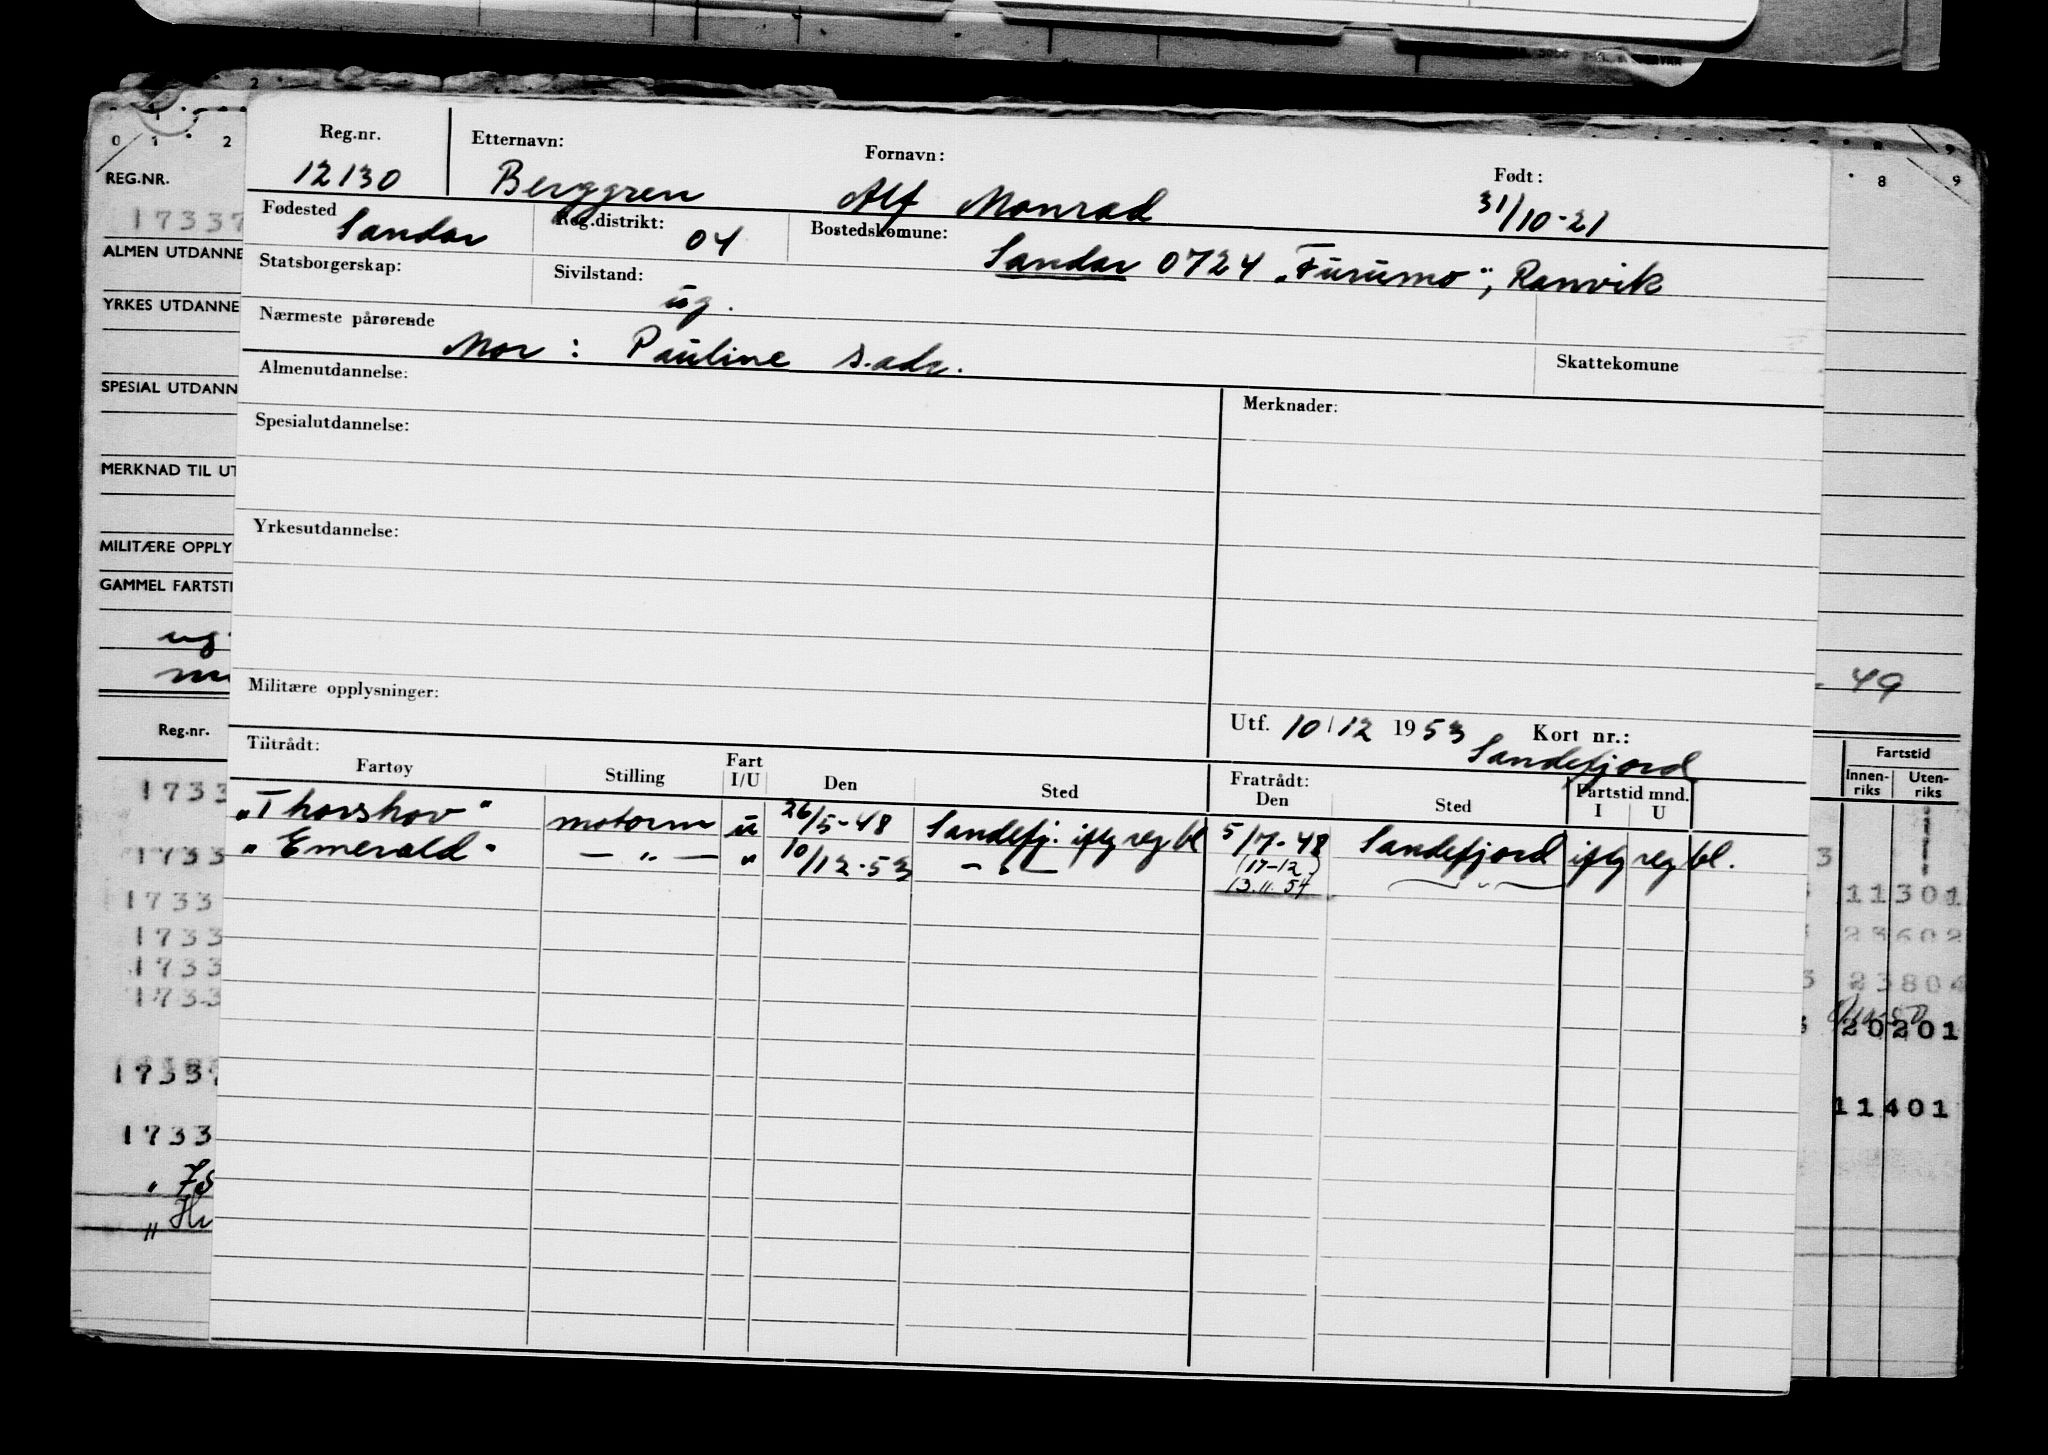 Reg.nr. Etternavn: Fornavn: Født:
12130 Berggren Alf Monrad 31/10-21
Fødested Reg.distrikt: Bostedskomune:
Sandar 04 Sandar 0724 "Furumo", Ranvik
Statsborgerskap: Sivilstand:
ug.
Nærmeste pårørende
Mor: Pauline s.adr.
Skattekomune
Almenutdannelse: Merknader:
Spesialutdannelse:
Yrkesutdannelse:
Militære opplysninger:
Utf. 10/12 1953 Kort nr.:
Sandefjord
Tiltrådt: Fratrådt:
Fartøy Stilling Fart I/U Den Sted Den Sted Fartstid mnd. I U
"Thorshov" motorm u 26/5-48 Sandefj. iflg reg bl 5/7-48 Sandefjord iflg reg bl.
"Emerald" — " — " 10/12-53 — " — (17-12) — " —
13.11.54
0 1 2
2
8 9
8 9
REG.NR.
17337
ALMEN UTDANNE
YRKES UTDANNE
SPESIAL UTDANN
MERKNAD TIL UT
MILITÆRE OPPLY
GAMMEL FARTSTI
ug
49
Reg.nr.
Fartstid
Innen-riks Uten-riks
1733
1733
1733
1733
1733
1733
1733
1733
3
11301
23602
23804
20201
11401